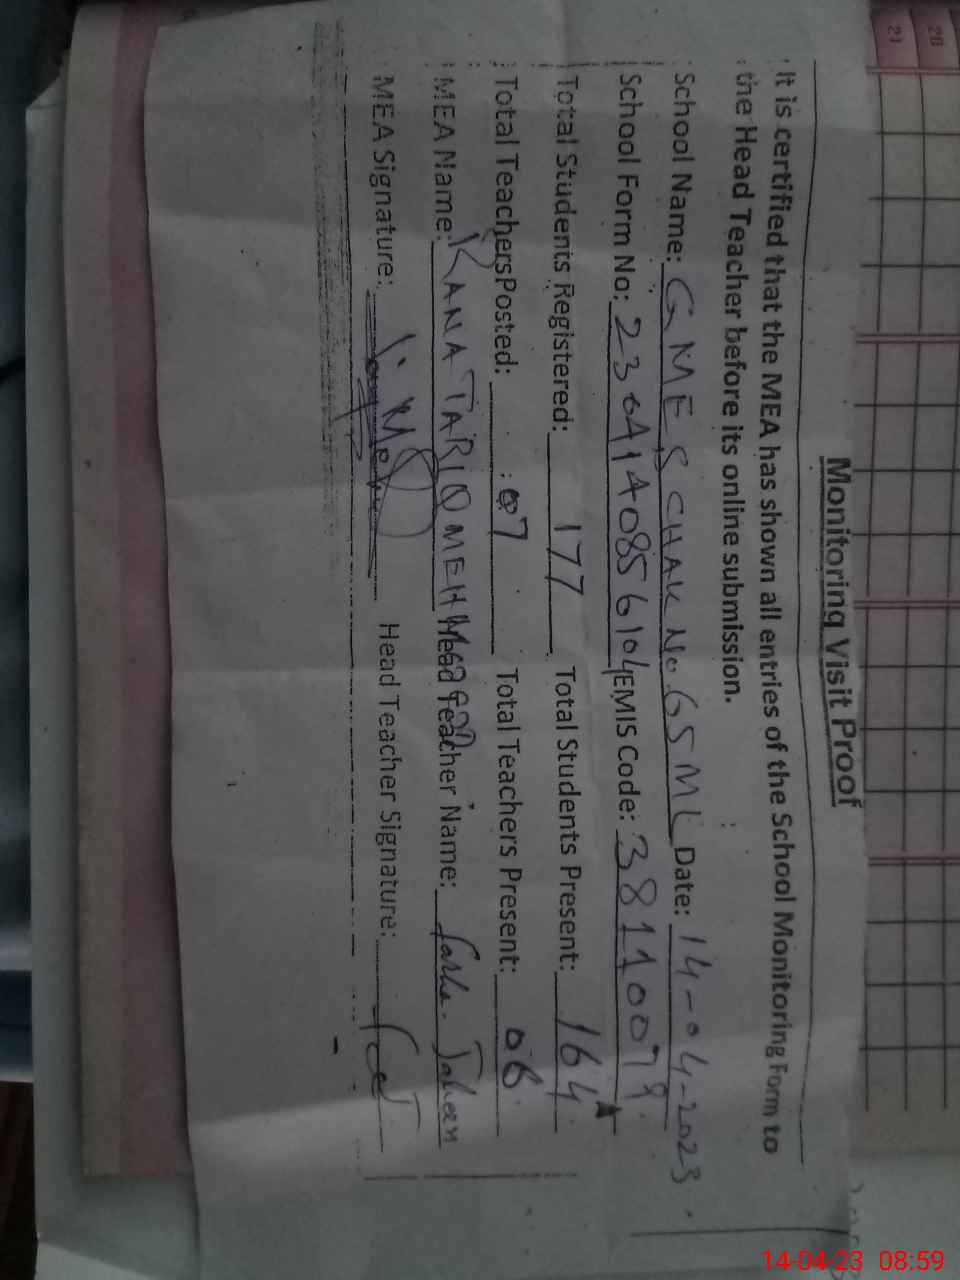 Monitoring Visit Proof
It is certified that the MEA has shown all entries of the School Monitoring Form to
the Head Teacher before its online submission.
School Name: GMES CHAK No. 65 ML Date: 14-04-2023
School Form No: 230414085610 EMIS Code: 38110079
Total Students Registered: 177 Total Students Present: 164
Total Teachers Posted: 07 Total Teachers Present: 06
MEA Name: RANA TARIQ MEHMOOD Head Teacher Name:
MEA Signature: Head Teacher Signature:
20
21
14-04-23 08:59